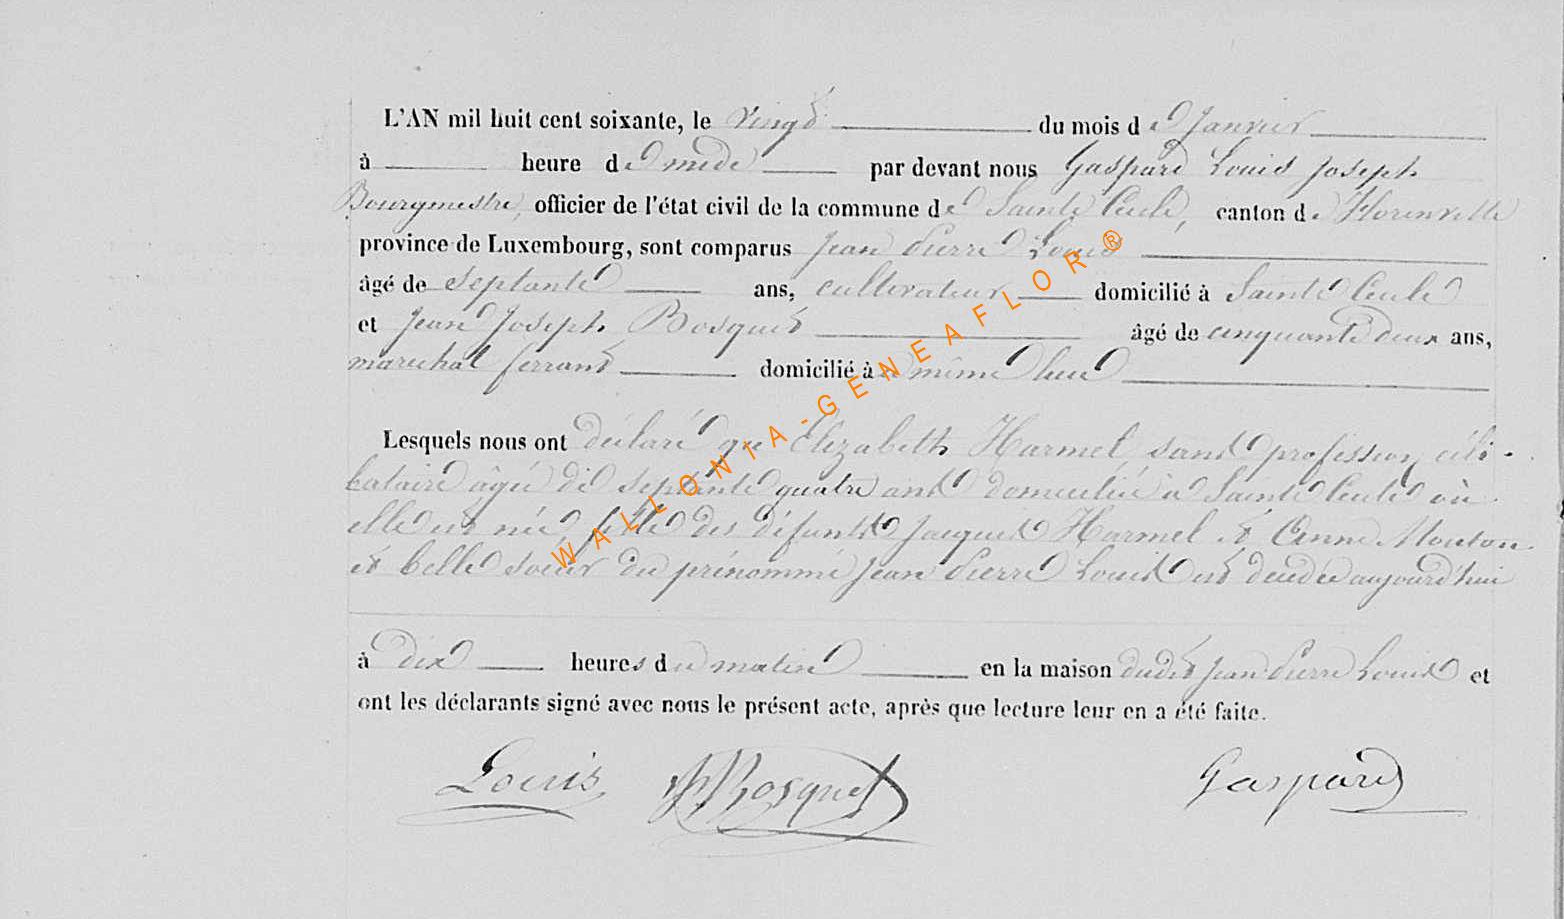 L'AN mil huit cent soixante, le vingt du mois de Janvier
à heure de midi par devant nous Gaspard Louis Joseph
Bourgmestre, officier de l'état civil de la commune de Sainte Cécile, canton de Florenville
province de Luxembourg, sont comparus Jean Pierre Louis
âgé de septante ans, cultivateur domicilié à Sainte Cécile
et Jean Joseph Bosquet âgé de cinquante deux ans,
maréchal ferrant domicilié à même lieu
Lesquels nous ont déclaré que Élizabeth Harmel sans profession céli-
bataire âgée de septante quatre ans domiciliée à Sainte Cécile où
elle est née, fille des défunts Jacques Harmel et Anne Mouton
et belle soeur du prénommé Jean Pierre Louis est décédée aujourd'hui
à dix heures du matin en la maison dudit Jean Pierre Louis et
ont les déclarants signé avec nous le présent acte, après que lecture leur en a été faite.
Louis Bosquet Gaspard
WALLONIA-GENEAFLOR®